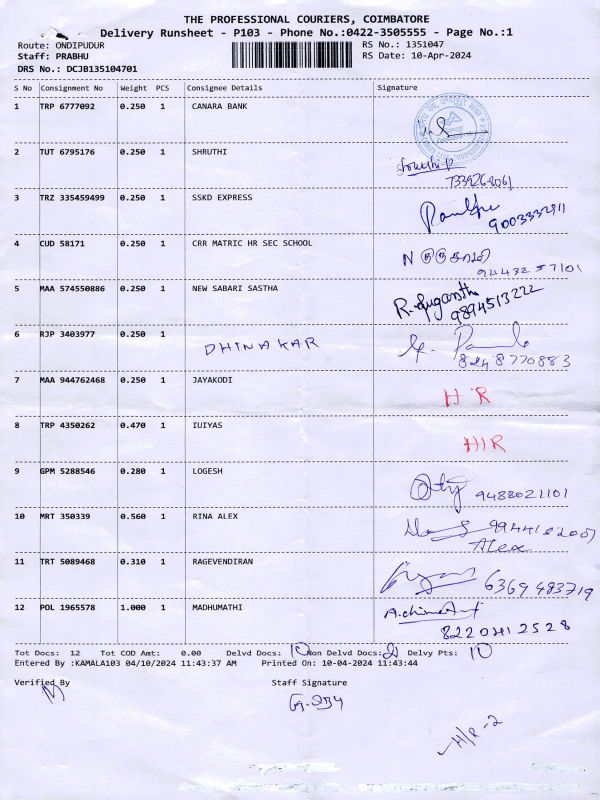 THE PROFESSIONAL COURIERS, COIMBATORE
Delivery Runsheet - P103 - Phone No.:0422-3505555 - Page No.:1
Route: ONDIPUDUR RS No.: 1351047
Staff: PRABHU RS Date: 10-Apr-2024
DRS No.: DCJB135104701
S No Consignment No Weight PCS Consignee Details Signature
1 TRP 6777092 0.250 1 CANARA BANK
2 TUT 6795176 0.250 1 SHRUTHI
7339268061
3 TRZ 335459499 0.250 1 SSKD EXPRESS
4 CUD 58171 0.250 1 CRR MATRIC HR SEC SCHOOL
9443257101
5 MAA 574550886 0.250 1 NEW SABARI SASTHA
9894513222
6 RJP 3403977 0.250 1 DHINAKAR
8248770883
7 MAA 944762468 0.250 1 JAYAKODI H R
8 TRP 4350262 0.470 1 IUIYAS H/R
9 GPM 5288546 0.280 1 LOGESH 9488021101
10 MRT 350339 0.560 1 RINA ALEX
Alex
11 TRT 5089468 0.310 1 RAGEVENDIRAN 6369483719
12 POL 1965578 1.000 1 MADHUMATHI
Tot Docs: 12 Tot COD Amt: 0.00 Delvd Docs: 10 Non Delvd Docs: 2 Delvy Pts: 10
Entered By :KAMALA103 04/10/2024 11:43:37 AM Printed On: 10-04-2024 11:43:44
Verified By Staff Signature
H/R-2